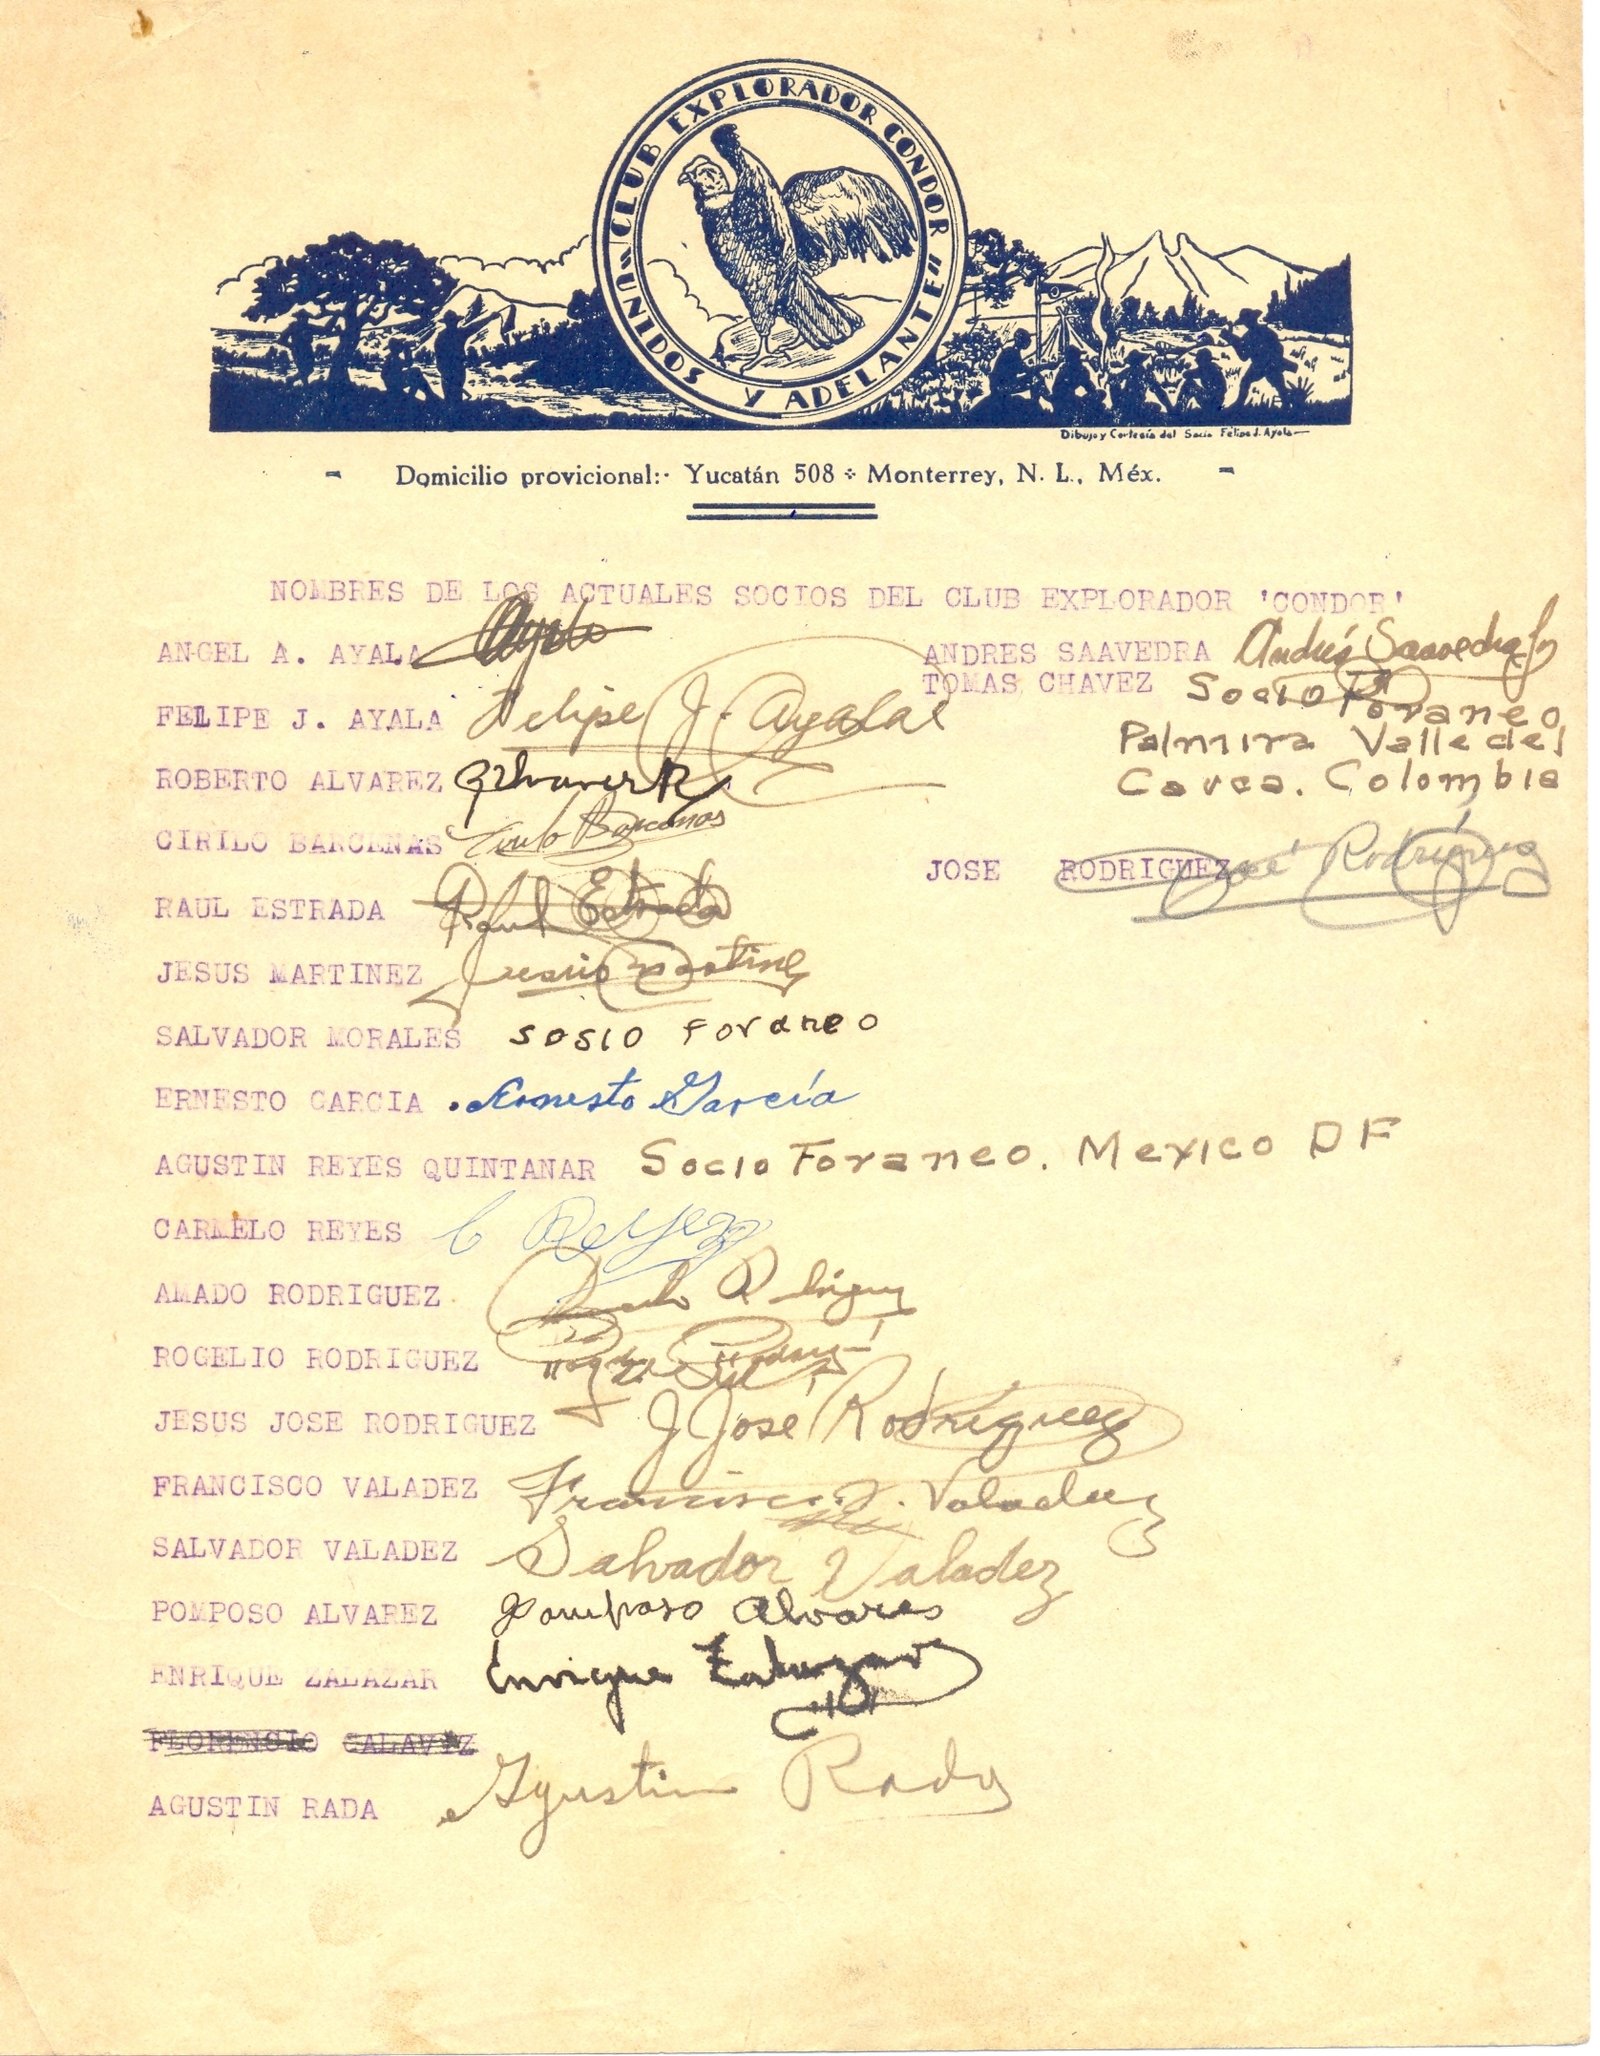 CLUB EXPLORADOR CONDOR
UNIDOS Y ADELANTE
Dibujo y Cortesía del Socio Felipe J. Ayala
- Domicilio provicional:- Yucatán 508 ÷ Monterrey, N. L., Méx. -
NOMBRES DE LOS ACTUALES SOCIOS DEL CLUB EXPLORADOR 'CONDOR'
ANGEL A. AYALA Ayala
FELIPE J. AYALA Felipe J. Ayala
ROBERTO ALVAREZ Alvarez R
CIRILO BARCENAS Cirilo Barcenas
RAUL ESTRADA Raful Estrada
JESUS MARTINEZ Jesus Martinez
SALVADOR MORALES SOSIO Foraneo
ERNESTO GARCIA Ernesto García
AGUSTIN REYES QUINTANAR Socio Foraneo. Mexico DF
CARMELO REYES C Reyez
AMADO RODRIGUEZ Amado Rodríguez
ROGELIO RODRIGUEZ
JESUS JOSE RODRIGUEZ J José Rodríguez
FRANCISCO VALADEZ Francisco J. Valadez
SALVADOR VALADEZ Salvador Valadez
POMPOSO ALVAREZ Pomposo Alvares
ENRIQUE ZALAZAR Enrique Zalazar
FLORENCIO GALAVIZ
AGUSTIN RADA Agustin Rada
ANDRES SAAVEDRA Andrés Saavedra
TOMAS CHAVEZ Socio Foraneo
Palmira Valle del
Cavca. Colombia
JOSE RODRIGUEZ José Rodríguez